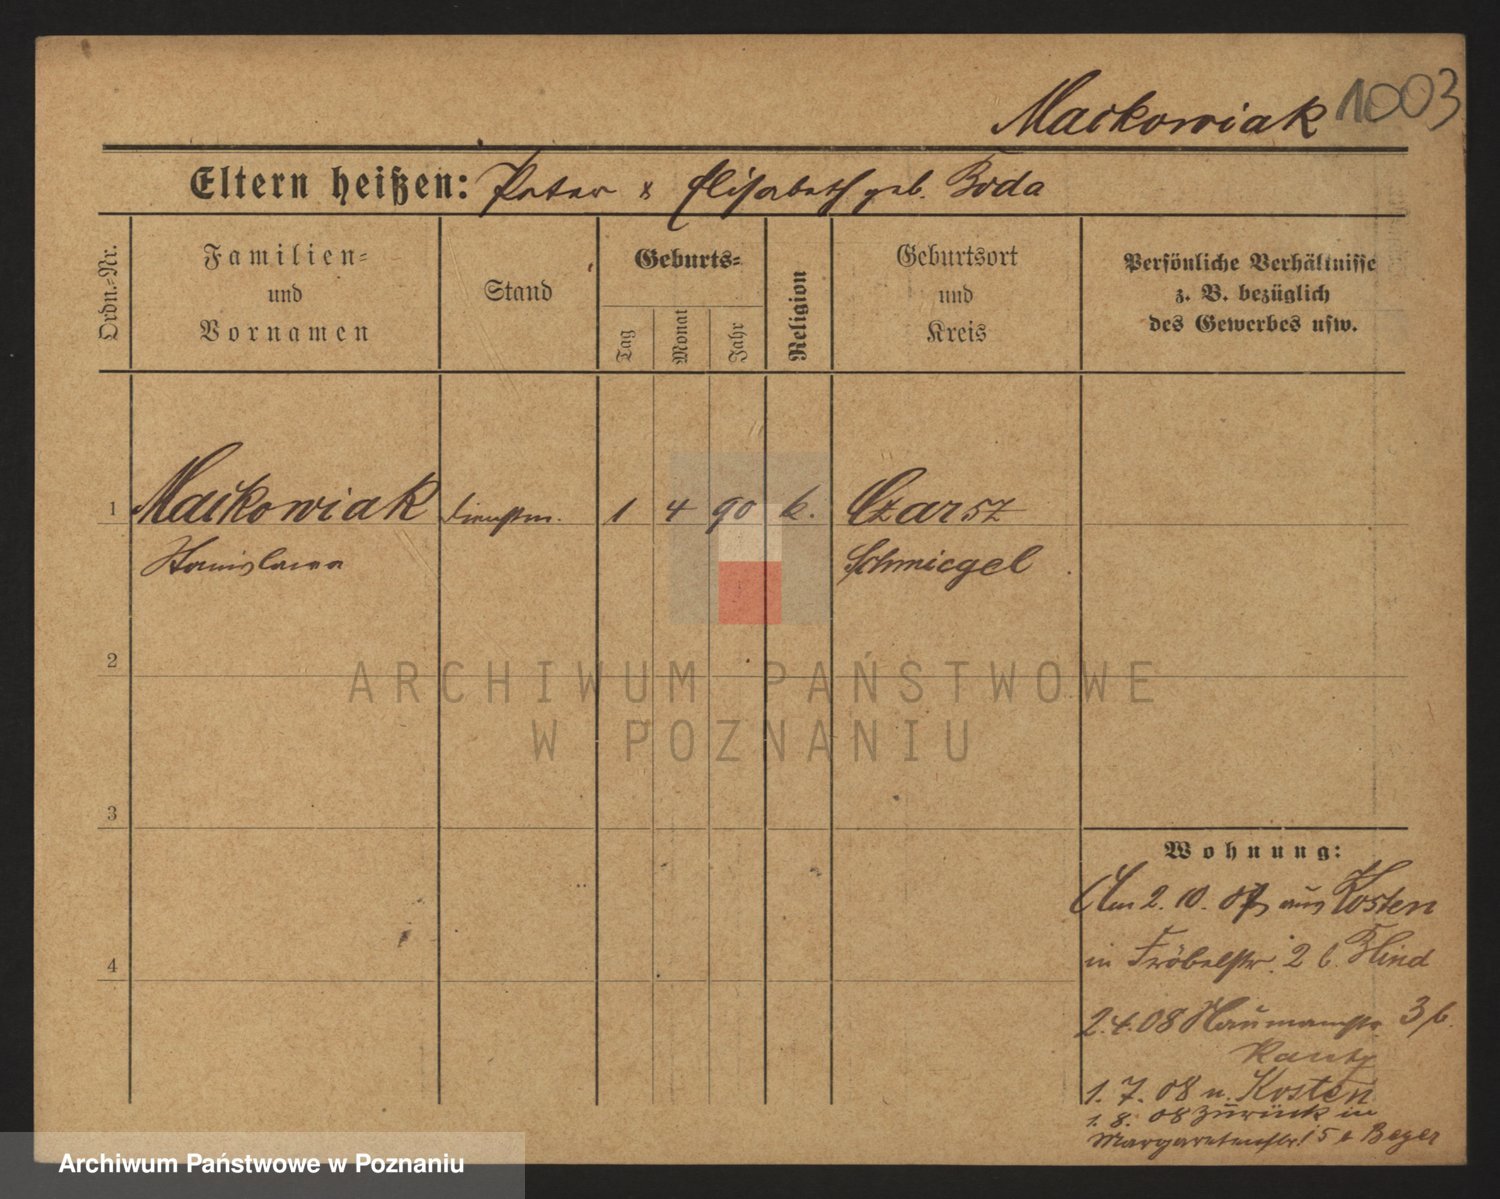 Maćkowiak 1003
Eltern heißen: Peter & Elisabeth geb. Boda
Ordn.-Nr.
Familien-
und
Vornamen
Stand
Geburts-
Tag
Monat
Jahr
Religion
Geburtsort
und
Kreis
Persönliche Verhältnisse
z. B. bezüglich
des Gewerbes usw.
1 Maćkowiak Dienstm. 1 4 90 k. Czarsz
Stanislawa Schmiegel
2
3
4
ARCHIWUM PAŃSTWOWE
W POZNANIU
Wohnung:
Am 2. 10. 07 aus Kosten
in Fröbelstr. 2 b. Blind
2.4.08 Naumannstr. 3 b.
1. 7. 08 n. Kosten
1. 8. 08 zurück in
Margaretenstr. 5 b Beyer
Archiwum Państwowe w Poznaniu